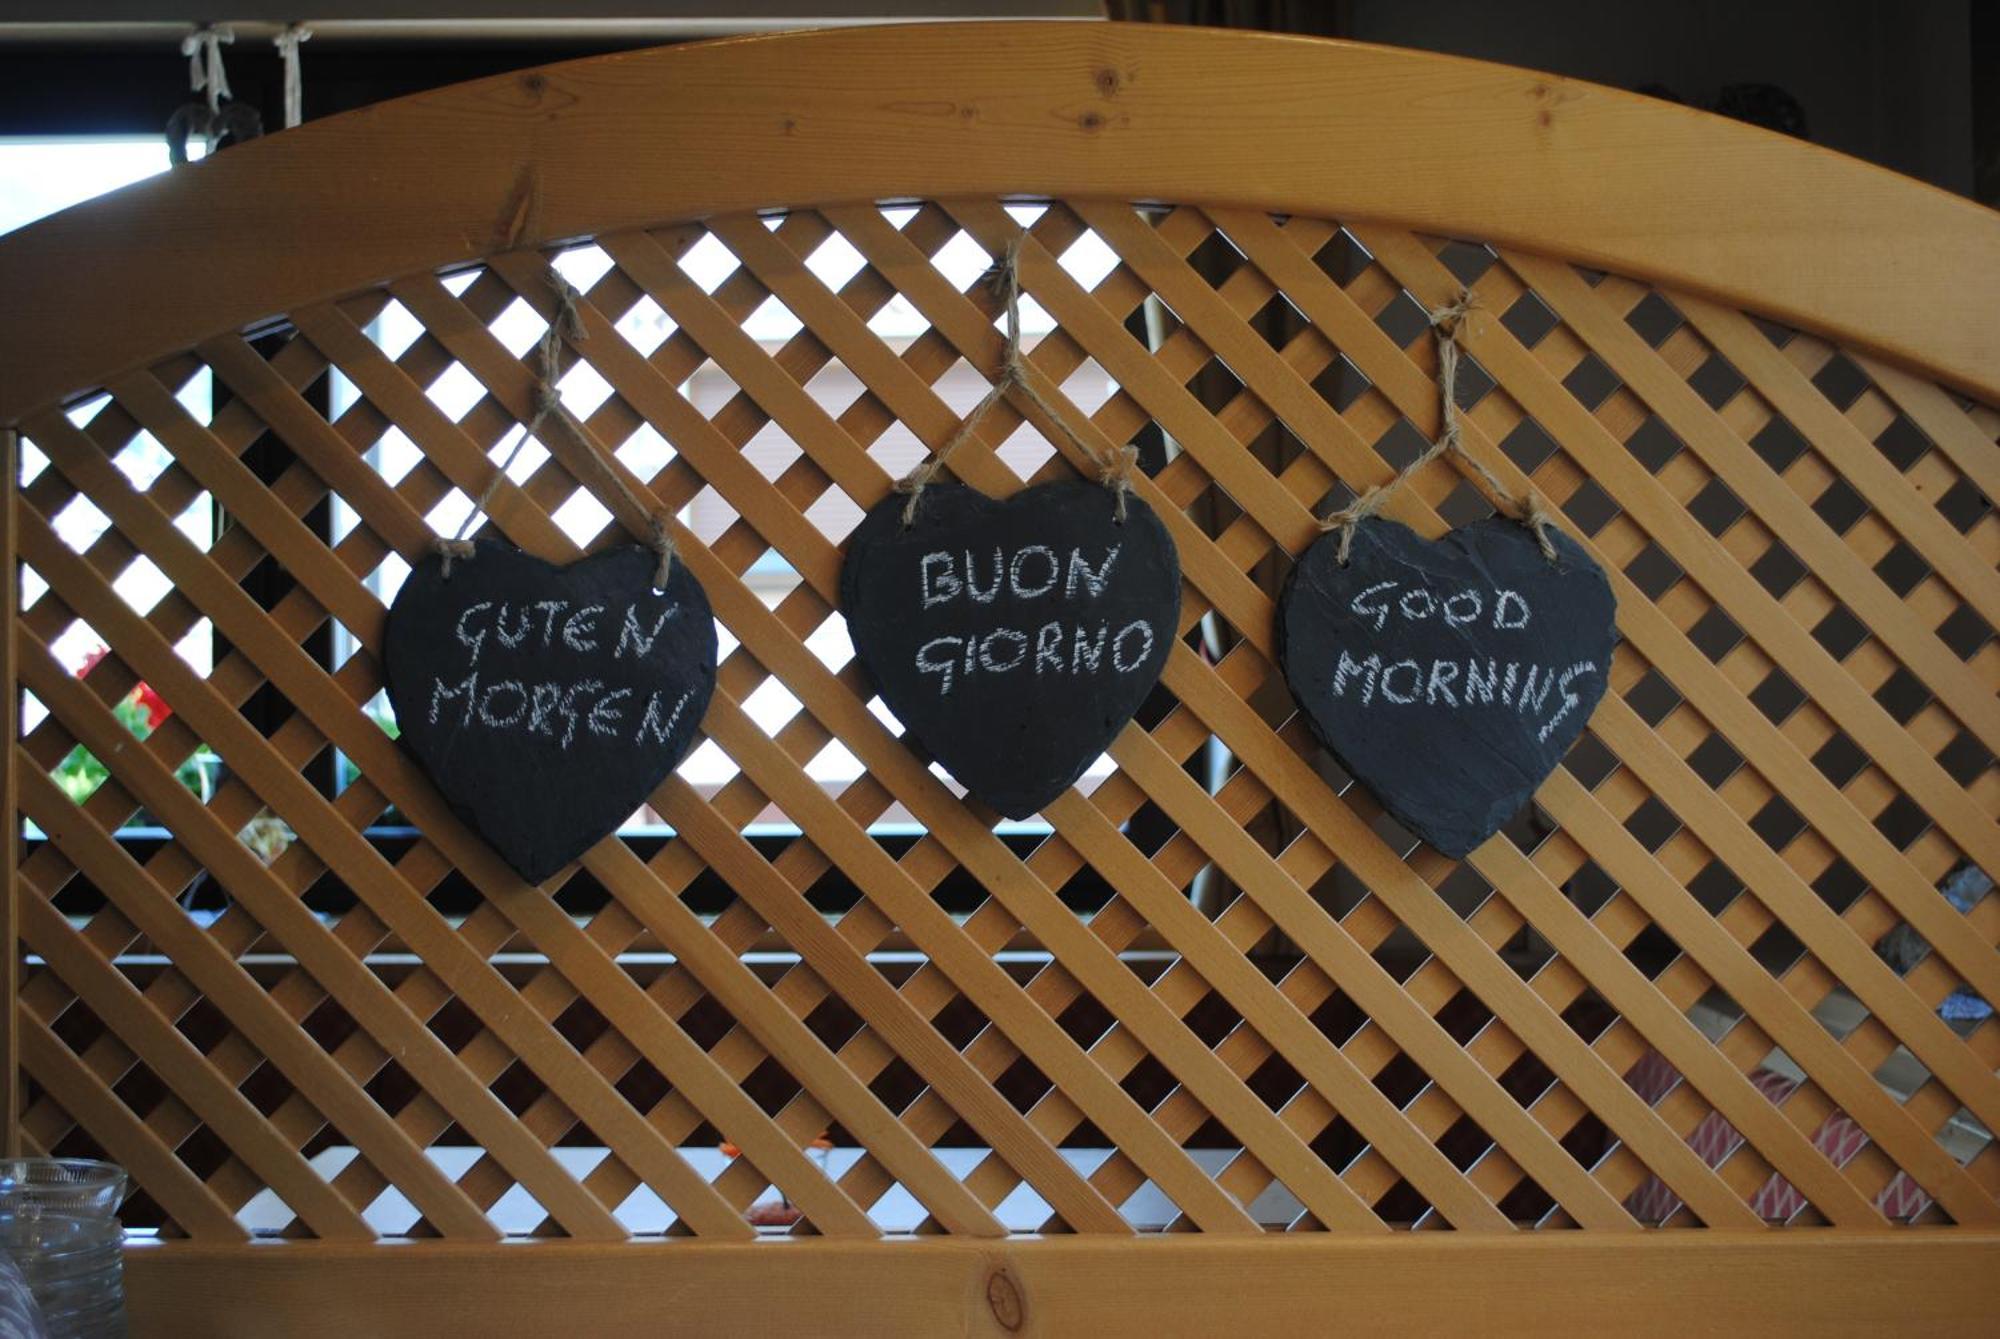 GUTEN
MORGEN
BUON
GIORNO
GOOD
MORNING